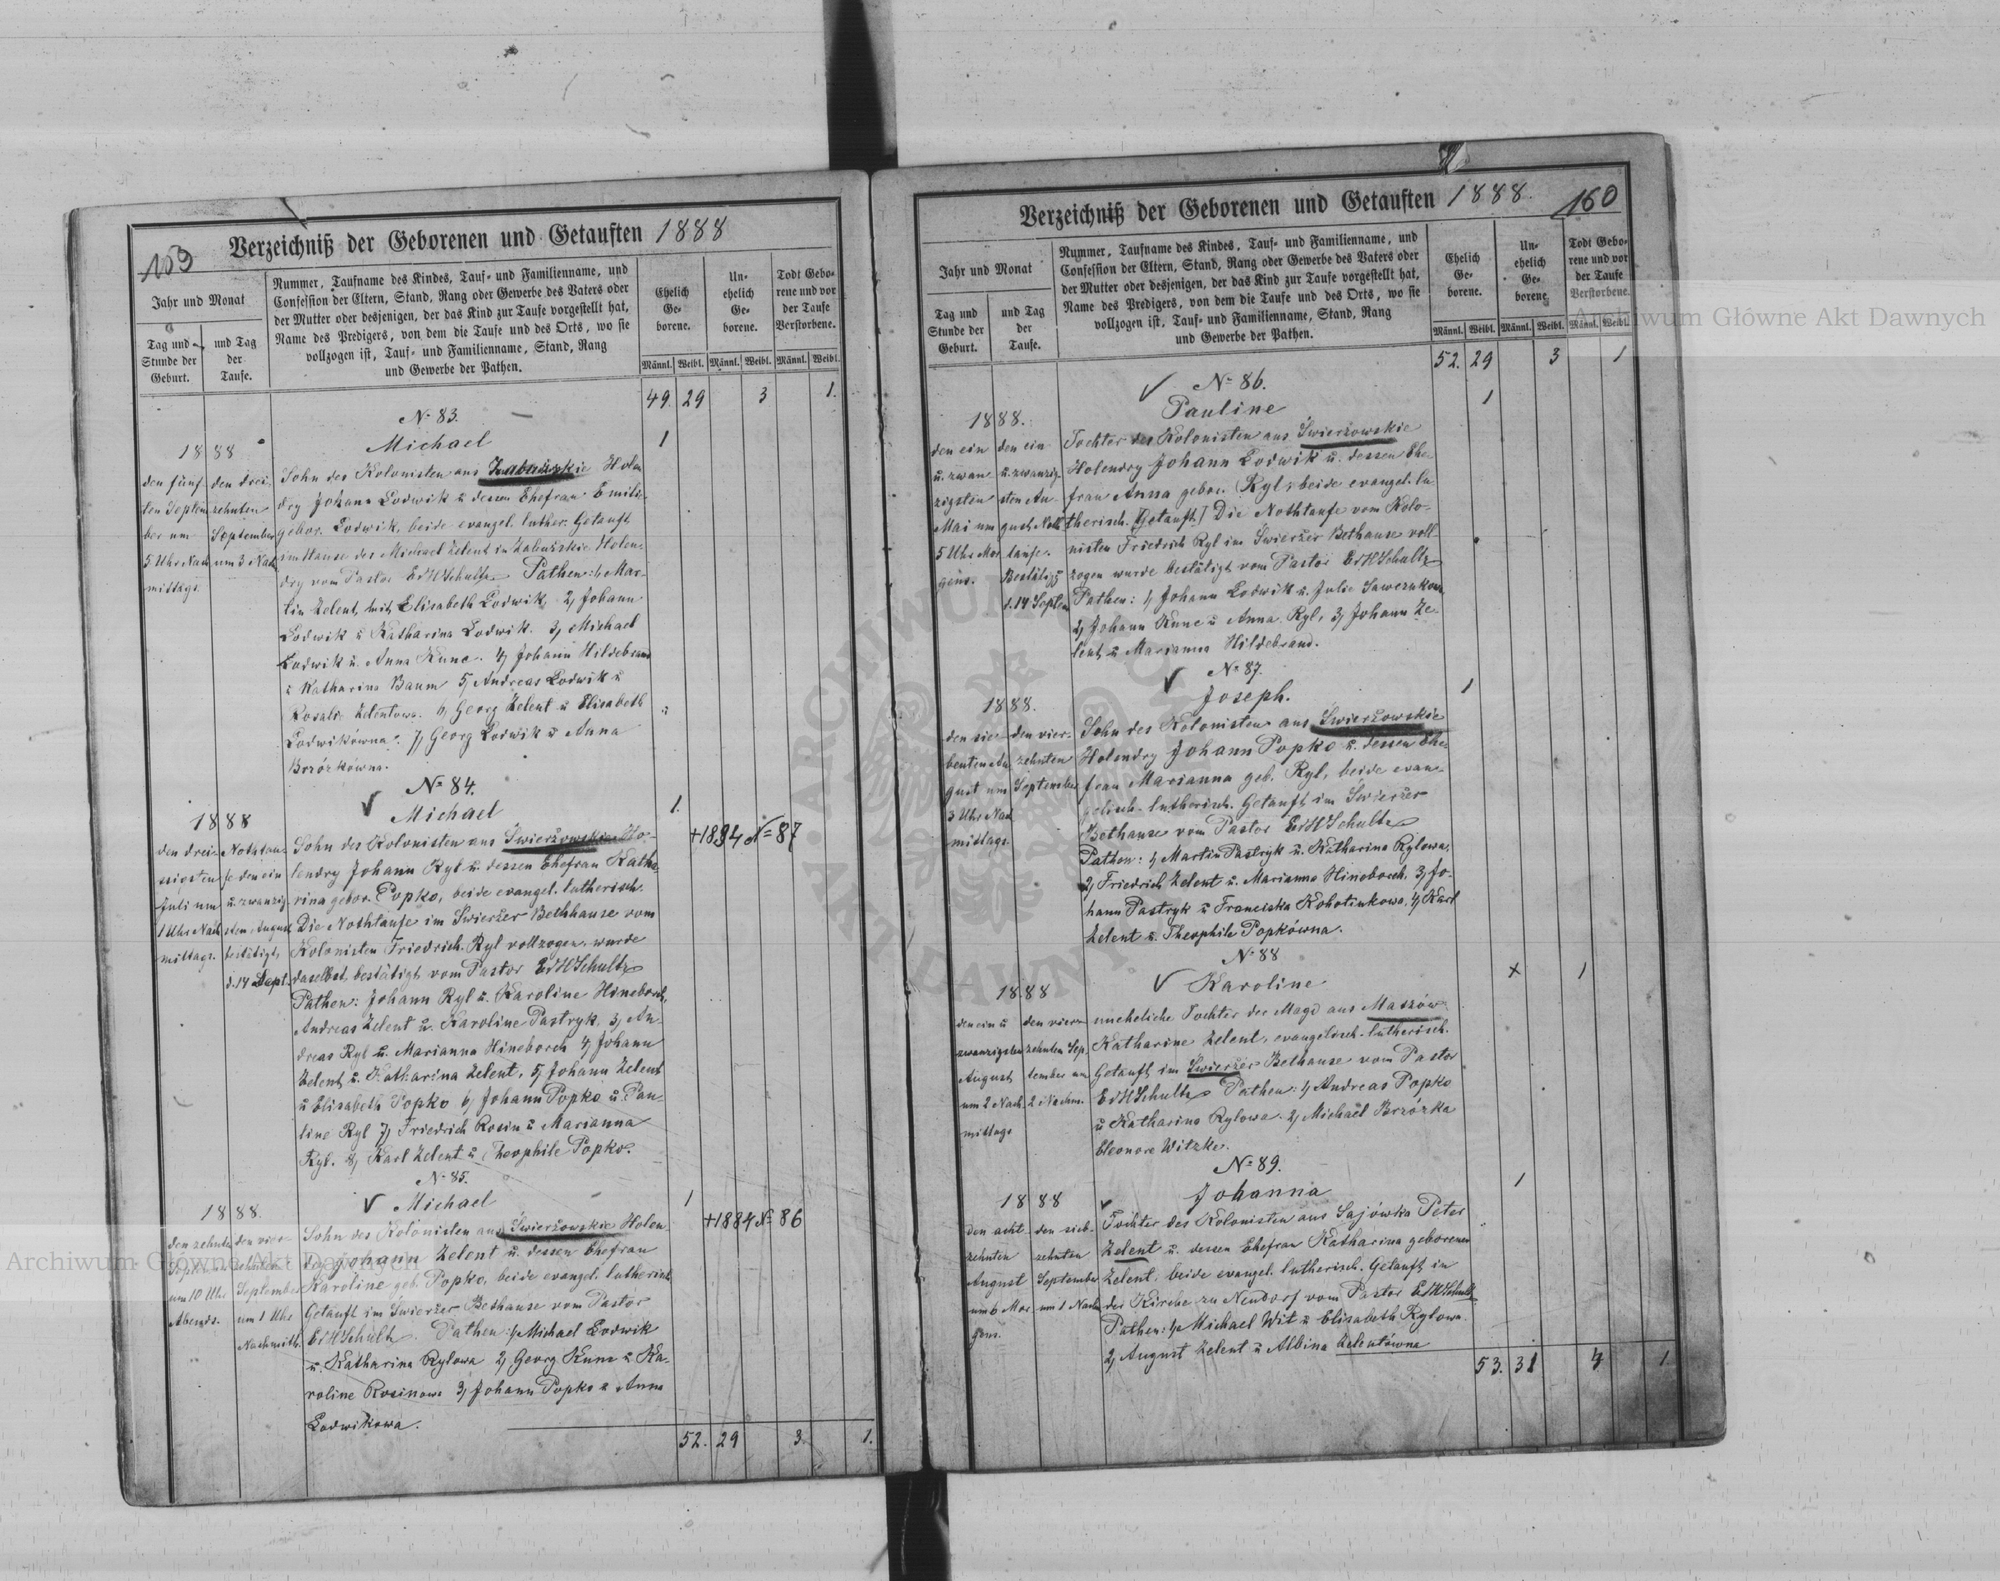 159
Verzeichniß der Geborenen und Getauften 1888
Jahr und Monat
Tag und
Stunde der
Geburt.
und Tag
der
Taufe.
Nummer, Taufname des Kindes, Tauf- und Familienname, und
Confession der Eltern, Stand, Rang oder Gewerbe des Vaters oder
der Mutter oder desjenigen, der das Kind zur Taufe vorgestellt hat,
Name des Predigers, von dem die Taufe und des Orts, wo sie
vollzogen ist, Tauf- und Familienname, Stand, Rang
und Gewerbe der Pathen.
Ehelich
Ge-
borene.
Un-
ehelich
Ge-
borene.
Todt Gebo-
rene und vor
der Taufe
Verstorbene.
Männl. Weibl. Männl. Weibl. Männl. Weibl.
49. 29 3 1.
№ 83.
Michael
1
1888
den fünf-
ten Septem
ber um
5 Uhr Nach
mittags.
den drei-
zehnten
September
um 3 Nach
Sohn des Kolonisten aus Zabużskie Holen
dry Johann Lodwik u dessen Ehefrau Emilie
gebor. Lodwik, beide evangel. luther. Getauft
im Hause des Michael Zelent in Zabużskie Holen-
dry vom Pastor EdHSchultz Pathen: 1, Mar-
tin Zelent mit Elisabeth Lodwik, 2, Johann
Lodwik u Katharina Lodwik. 3, Michael
Lodwik u. Anna Kunc. 4, Johann Hildebrand
u Katharina Baum 5, Andreas Lodwik u
Rosalie Zelentowa. 6, Georg Zelent u Elisabeth
Lodwikówna. 7, Georg Lodwik u Anna
Brzózkówna.
№ 84.
Michael
1.
+1894 № 87
1888
den drei-
ssigsten
Juli um
1 Uhr Nach
mittags.
Nothtau-
fe den ein
u. zwanzig-
sten August
bestätigt
d. 14 Sept.
Sohn des Kolonisten aus Świerżowskie Ho-
lendry Johann Ryl u. dessen Ehefrau Katha-
rina gebor. Popko, beide evangel. lutherisch.
Die Nothtaufe im Świerżer Bethhause vom
Kolonisten Friedrich Ryl vollzogen, wurde
daselbst bestätigt vom Pastor EdHSchultz
Pathen: Johann Ryl u. Karoline Hineborch,
Andreas Zelent u. Karoline Pastryk, 3, An-
dreas Ryl u. Marianna Hineborch 4, Johann
Zelent u. Katharina Zelent, 5, Johann Zelent
u Elisabeth Popko 6, Johann Popko u. Pau-
line Ryl 7, Friedrich Rosin u Marianna
Ryl. 8, Karl Zelent u Theophile Popko.
№ 85.
Michael
1
+1884 № 86
1888.
den zehnten
um 10 Uhr
Abends.
den vier-
zehnten
September
um 1 Uhr
Nachmitt.
Sohn des Kolonisten aus Świerżowskie Holen
dry Johann Zelent u. dessen Ehefrau
Karoline geb. Popko, beide evangel. lutherisch
Getauft im Świerżer Bethause vom Pastor
EdHSchultz. Pathen: 1, Michael Lodwik
u. Katharina Rylowa 2, Georg Kunc u Ka-
roline Rosinowa 3, Johann Popko u Anna
Lodwikowa.
52. 29 3. 1.
160
Verzeichniß der Geborenen und Getauften 1888.
Jahr und Monat
Tag und
Stunde der
Geburt.
und Tag
der
Taufe.
Nummer, Taufname des Kindes, Tauf- und Familienname, und
Confession der Eltern, Stand, Rang oder Gewerbe des Vaters oder
der Mutter oder desjenigen, der das Kind zur Taufe vorgestellt hat,
Name des Predigers, von dem die Taufe und des Orts, wo sie
vollzogen ist, Tauf- und Familienname, Stand, Rang
und Gewerbe der Pathen.
Ehelich
Ge-
borene.
Un-
ehelich
Ge-
borene.
Todt Gebo-
rene und vor
der Taufe
Verstorbene.
Männl. Weibl. Männl. Weibl. Männl. Weibl.
52. 29 3 1
№ 86.
Pauline
1
1888.
den ein
u. zwan
zigsten
Mai um
5 Uhr Mor
gens.
den ein
u. zwanzig-
sten Au-
gust Noth
taufe.
Bestätigt
d. 14 Septem
Tochter des Kolonisten aus Świerżowskie
Holendry Johann Lodwik u. dessen Ehe-
frau Anna gebor. Ryl, beide evangel. lu-
therisch. [Getauft] Die Nothtaufe vom Kolo-
nisten Friedrich Ryl im Świerżer Bethause voll-
zogen wurde bestätigt vom Pastor EdHSchultz
Pathen: 1, Johann Lodwik u. Julie Sawczukowa,
2, Johann Kunc u Anna Ryl, 3, Johann Ze-
lent u Marianna Hildebrand.
№ 87.
Joseph.
1
1888.
den sie-
benten Au
gust um
3 Uhr Nach
mittags.
den vier-
zehnten
September
Sohn des Kolonisten aus Świerżowskie
Holendry Johann Popko u. dessen Ehe-
frau Marianna geb. Ryl, beide evan-
gelisch-lutherisch. Getauft im Świerżer
Bethause vom Pastor EdHSchultz
Pathen: 1, Martin Pastryk u. Katharina Rylowa,
2, Friedrich Zelent u. Marianna Hineborch. 3, Jo-
hann Pastryk u Franciska Kohotinkowa, 4, Karl
Zelent u. Theophile Popkówna.
№ 88
Karoline
x 1
1888
den ein u
zwanzigsten
August
um 2 Nach
mittags
den vier-
zehnten Sep-
tember um
2 Nachm.
uneheliche Tochter der Magd aus Maszów
Katharine Zelent, evangelisch-lutherisch.
Getauft im Świerżer Bethause vom Pastor
EdHSchultz Pathen: 1, Andreas Popko
u Katharina Rylowa. 2, Michaël Brzózka
Eleonore Witzke.
№ 89.
Johanna
1
1888
den acht-
zehnten
August
um 6 Mor
gens.
den sieb-
zehnten
September
um 1 Nachm
Tochter des Kolonisten aus Sajówka Peter
Zelent u. dessen Ehefrau Katharina geborenen
Zelent, beide evangel. lutherisch. Getauft in
der Kirche zu Neudorf vom Pastor EdHSchultz
Pathen: 1, Michael Wit u Elisabeth Rylowa
2, August Zelent u Albina Zelentówna
53. 31 4 1
Archiwum Główne Akt Dawnych
Archiwum Główne Akt Dawnych